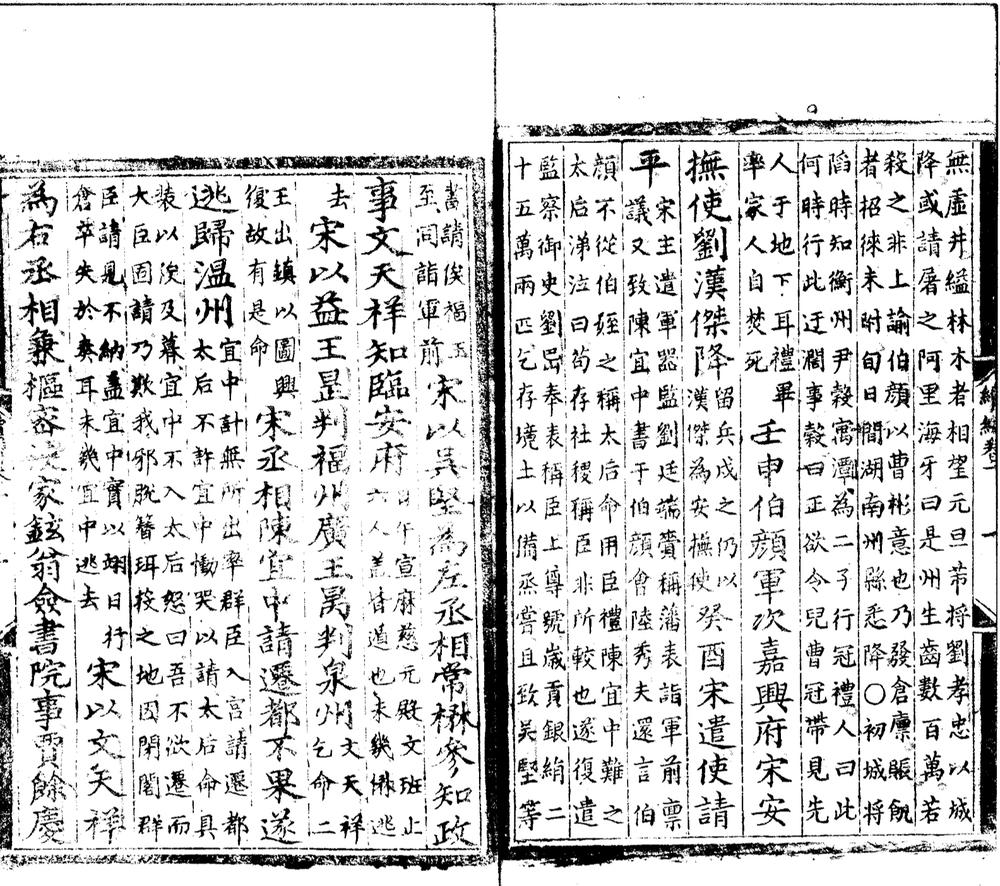 無虛井縊林木者相望元旦芾将劉孝忠以城
降或請屠之阿里海牙曰是州生齒數百萬若
殺之非上諭伯顔以曹彬意也乃發倉廪賑飢
者招徠未附旬日間湖南州縣悉降〇初城将
陷時知衡州尹穀寓潭為二子行冠禮人曰此
何時行此迂濶事穀曰正欲令兒曹冠帶見先
人于地下耳禮畢
率家人自焚死
壬申伯顔軍次嘉興府宋安
撫使劉漢傑降
留兵戍之仍以
漢傑為安撫使
癸酉宋遣使請
平
宋主遣軍器監劉廷瑞賫稱藩表詣軍前禀
議又致陳宜中書于伯顔會陸秀夫還言伯
顔不從伯姪之稱太后命用臣禮陳宜中難之
太后涕泣曰苟存社稷稱臣非所較也遂復遣
監察御史劉岊奉表稱臣上尊號歲貢銀絹二
十五萬兩匹乞存境土以備烝嘗且致吳堅等
書請俟福王
至同詣軍前
宋以吳堅為左丞相常楙參知政
事文天祥知臨安府
日午宣麻慈元殿文班止
六人蓋皆遁也未幾楙逃
去
宋以益王昰判福州廣王昺判泉州
文天祥
乞命二
王出鎮以圖興
復故有是命
宋丞相陳宜中請遷都不果遂
逃歸温州
宜中計無所出率群臣入宮請遷都
太后不許宜中慟哭以請太后命具
装以俟及暮宜中不入太后怒曰吾不欲遷而
大臣固請乃欺我邪脫簪珥投之地因閉閤群
臣請見不納盖宜中實以翊日行
倉卒失於奏耳未幾宜中逃去
宋以文天祥
為右丞相兼樞密使家鉉翁僉書院事賈餘慶